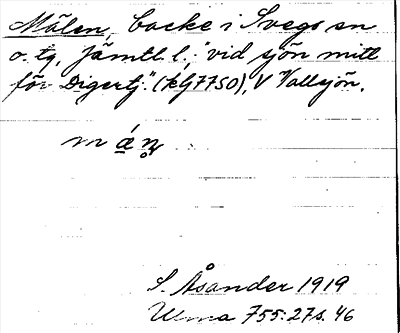 Målen, backe i Svegs sn
o. tg, Jämtl. l.; "vid sjön mitt
för Digertj." (kG7750), V Vallsjön.
m
S. Åsander 1919
Ulma 755:27 s. 46